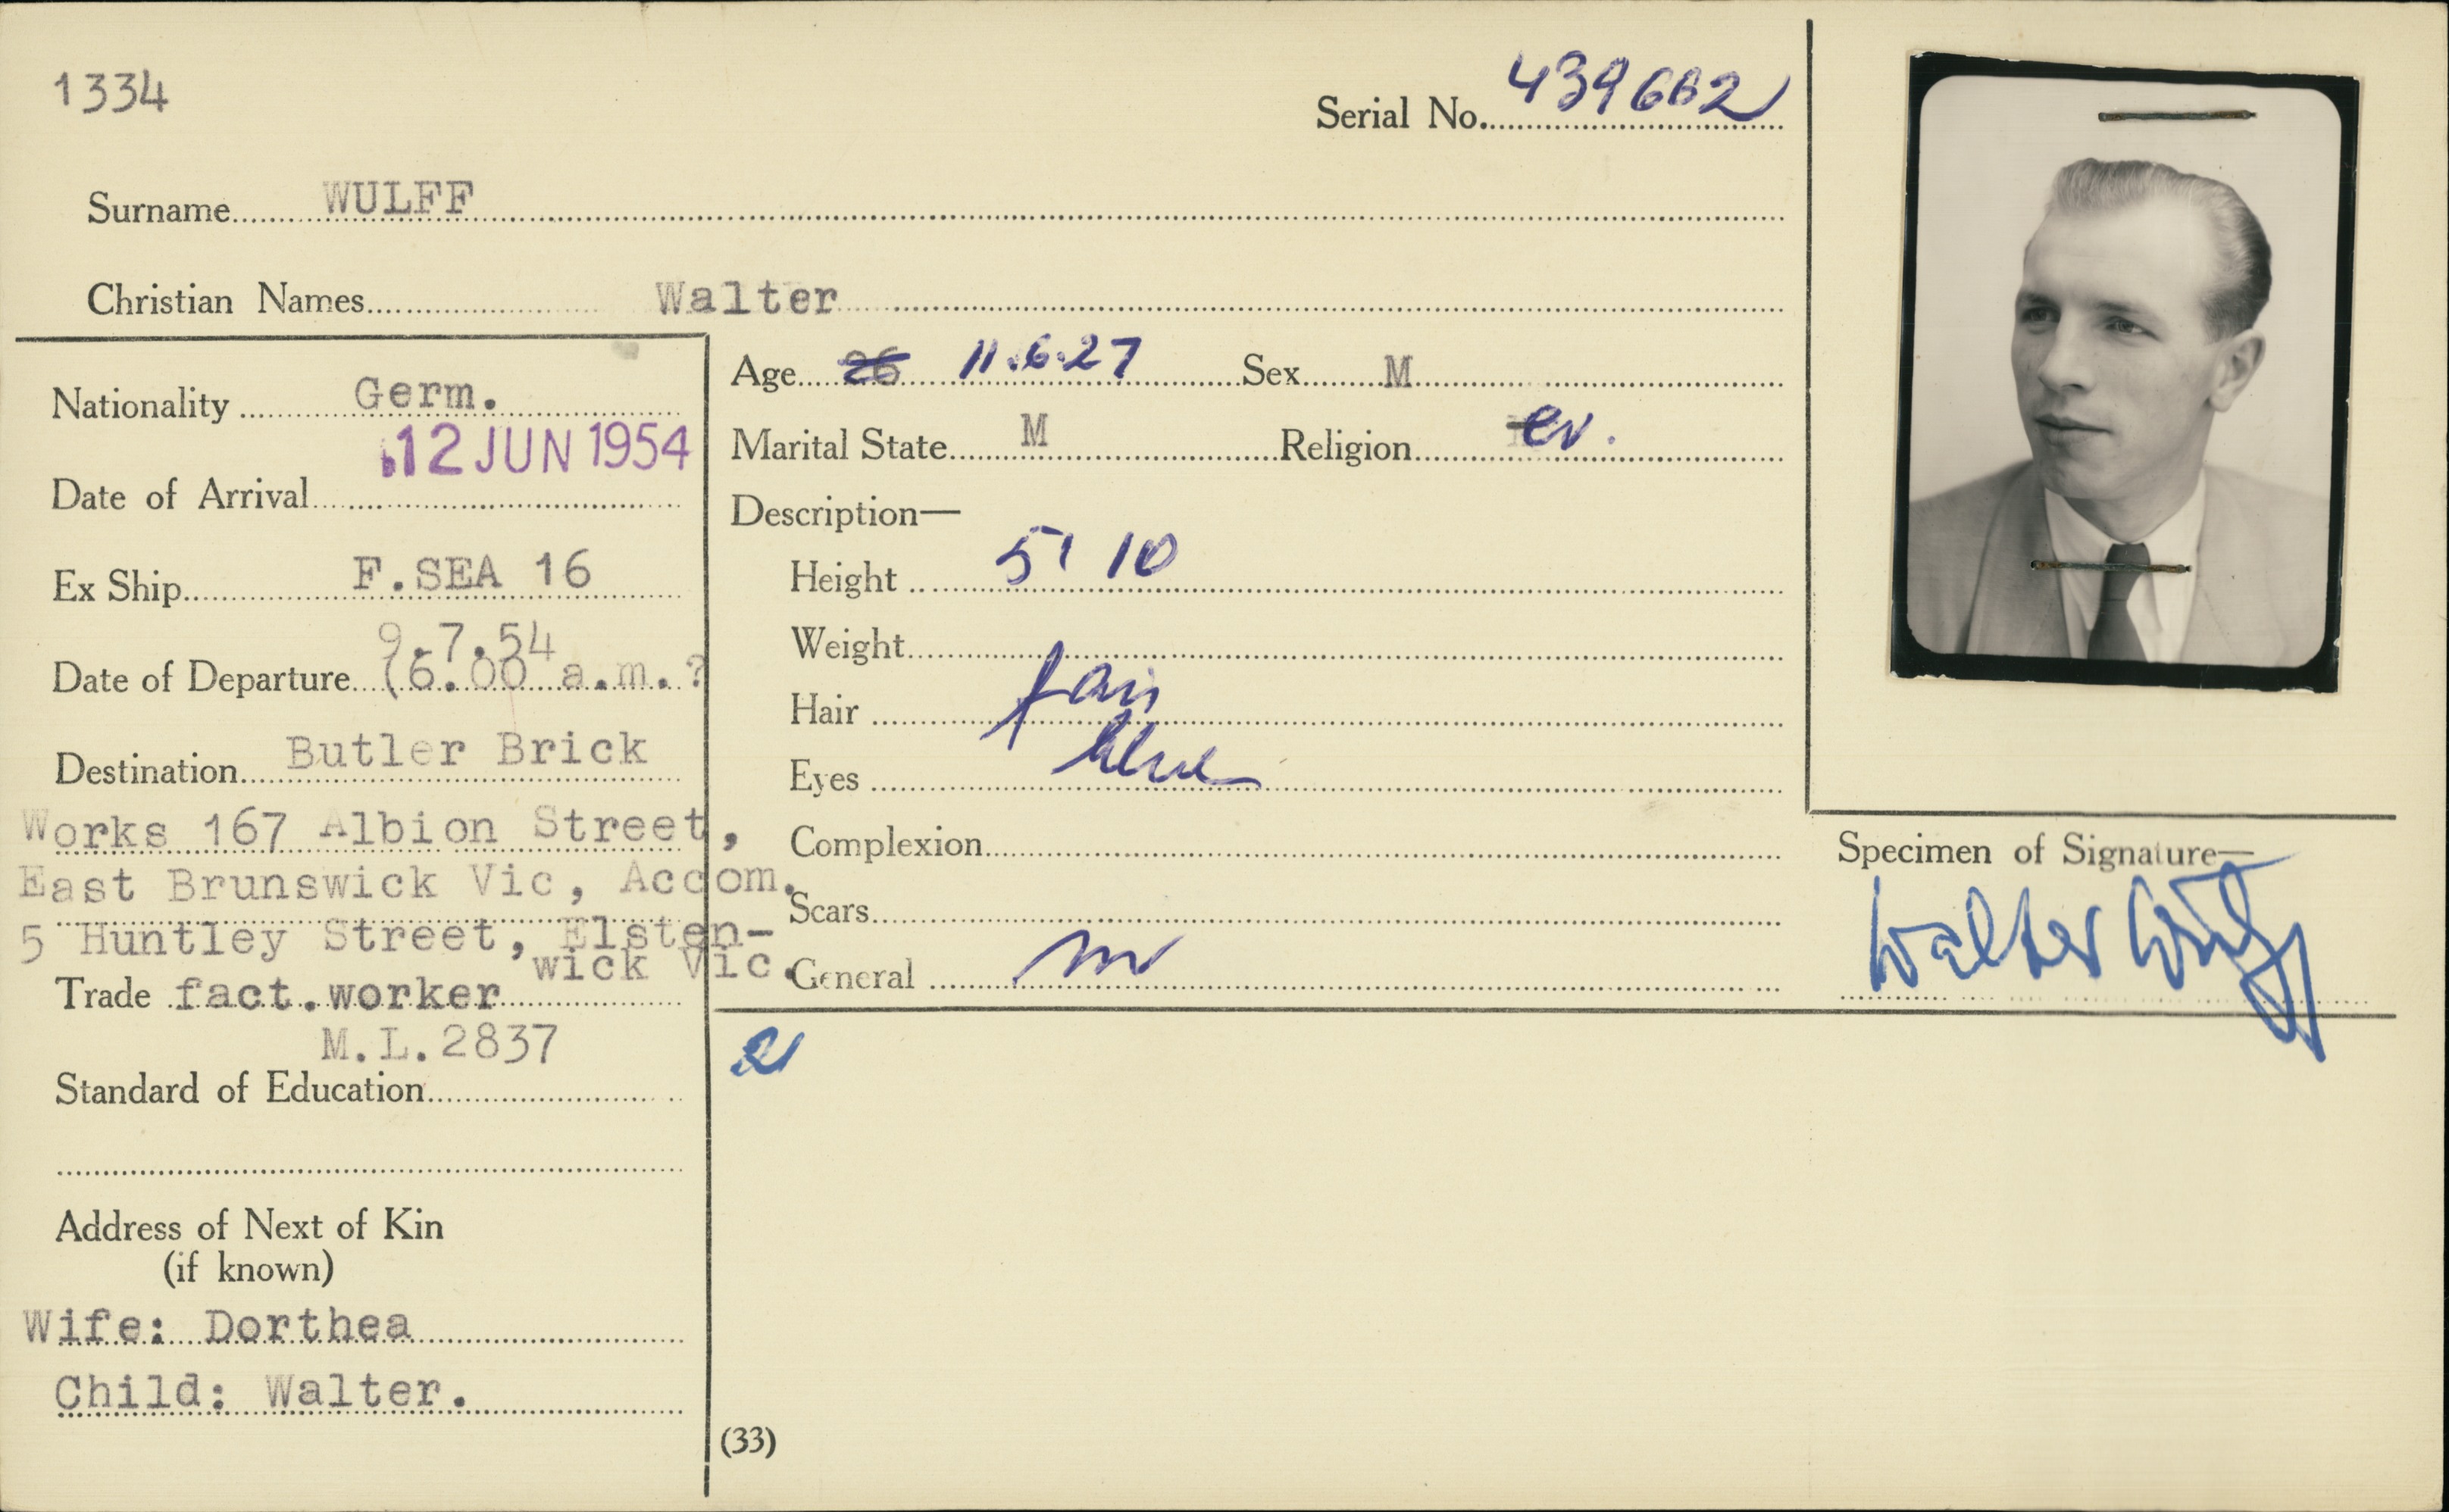 1334
Serial No. 439662
Surname WULFF
Christian Names Walter
Nationality Germ.
Date of Arrival 12 JUN 1954
Ex Ship F.SEA 16
9.7.54
Date of Departure (6.00 a.m.?
Destination Butler Brick
Works 167 Albion Street,
East Brunswick Vic, Accom.
5 Huntley Street, Elsten-
wick Vic.
Trade fact.worker
M.L.2837
Standard of Education
Address of Next of Kin
(if known)
Wife: Dorthea
Child: Walter.
Age 26 11.6.27 Sex M
Marital State M Religion ev.
Description—
Height 5' 10
Weight
Hair fair
Eyes blue
Complexion
Scars
General
(33)
Specimen of Signature—
Walter Wulff